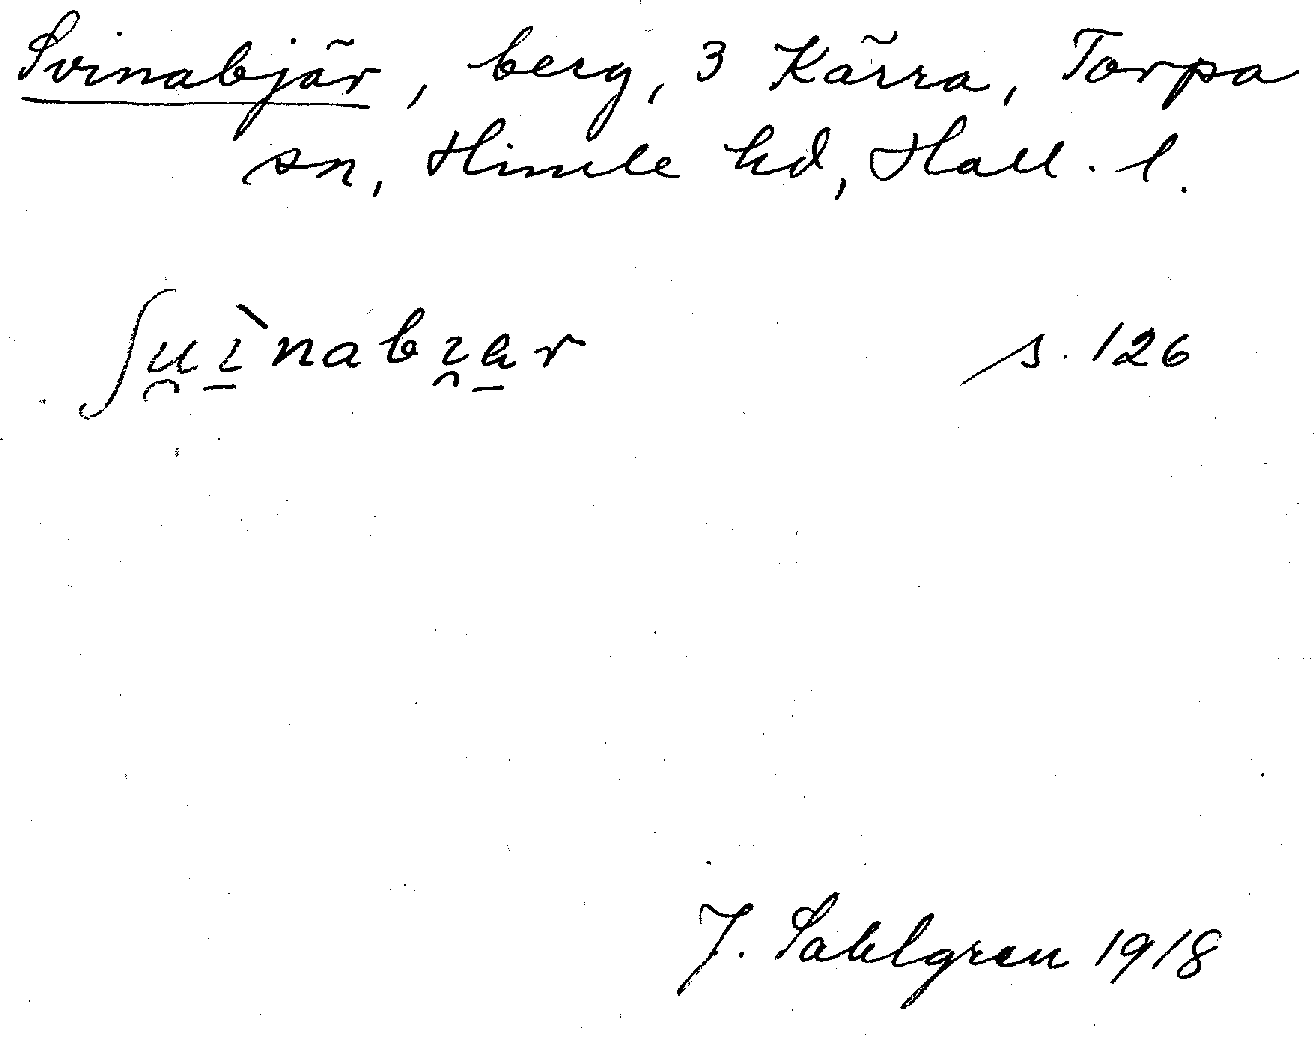 Svinabjär, berg, 3 Kärra, Torpa
sn, Himle hd, Hall. l.
ʃu̯ɪ̠̀nabɪ̯a̠r s. 126
J. Sahlgren 1918